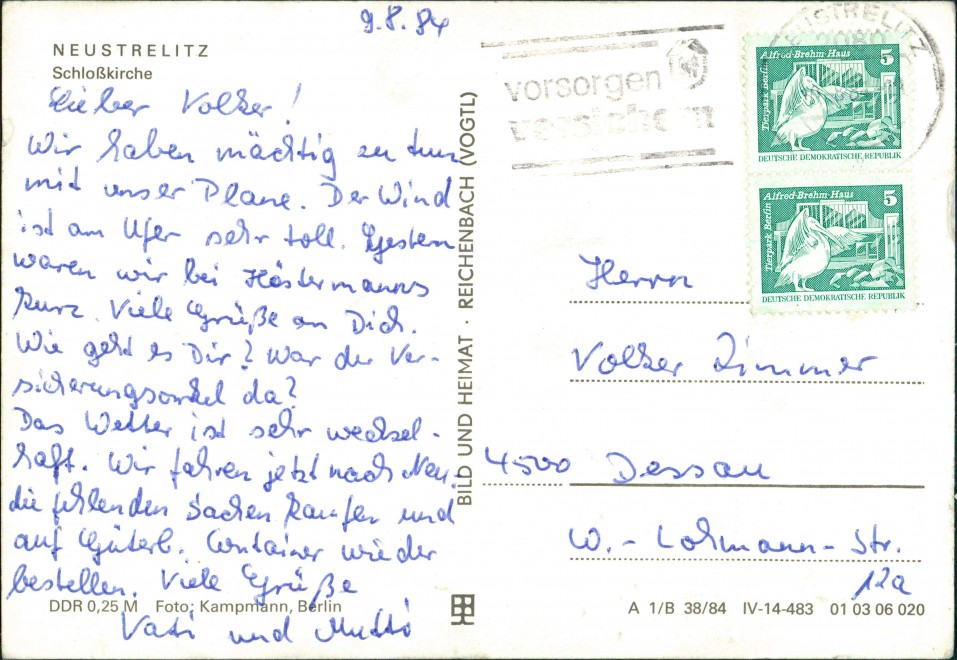 9.8.84
NEUSTRELITZ
Schloßkirche
Lieber Volker!
Wir haben mächtig zu tun
mit unser Plane. Der Wind
ist am Ufer sehr toll. Gestern
waren wir bei Höstermanns
kurz. Viele Grüße an Dich.
Wie geht es Dir? War der Ver-
sicherungsonkel da?
Das Wetter ist sehr wechsel-
haft. Wir fahren jetzt nach Neu.
die fehlenden Sachen kaufen und
auf Güterb. Container wieder
bestellen. Viele Grüße
Vati und Mutti
DDR 0,25 M Foto: Kampmann, Berlin
BILD UND HEIMAT · REICHENBACH (VOGTL)
vorsorgen
versichern
NEUSTRELITZ
2080
Alfred-Brehm-Haus 5
Tierpark Berlin
DEUTSCHE DEMOKRATISCHE REPUBLIK
Alfred-Brehm-Haus 5
Tierpark Berlin
DEUTSCHE DEMOKRATISCHE REPUBLIK
Herrn
Volker Zimmer
4500 Dessau
W.-Lohmann-Str.
12a
A 1/B 38/84 IV-14-483 01 03 06 020